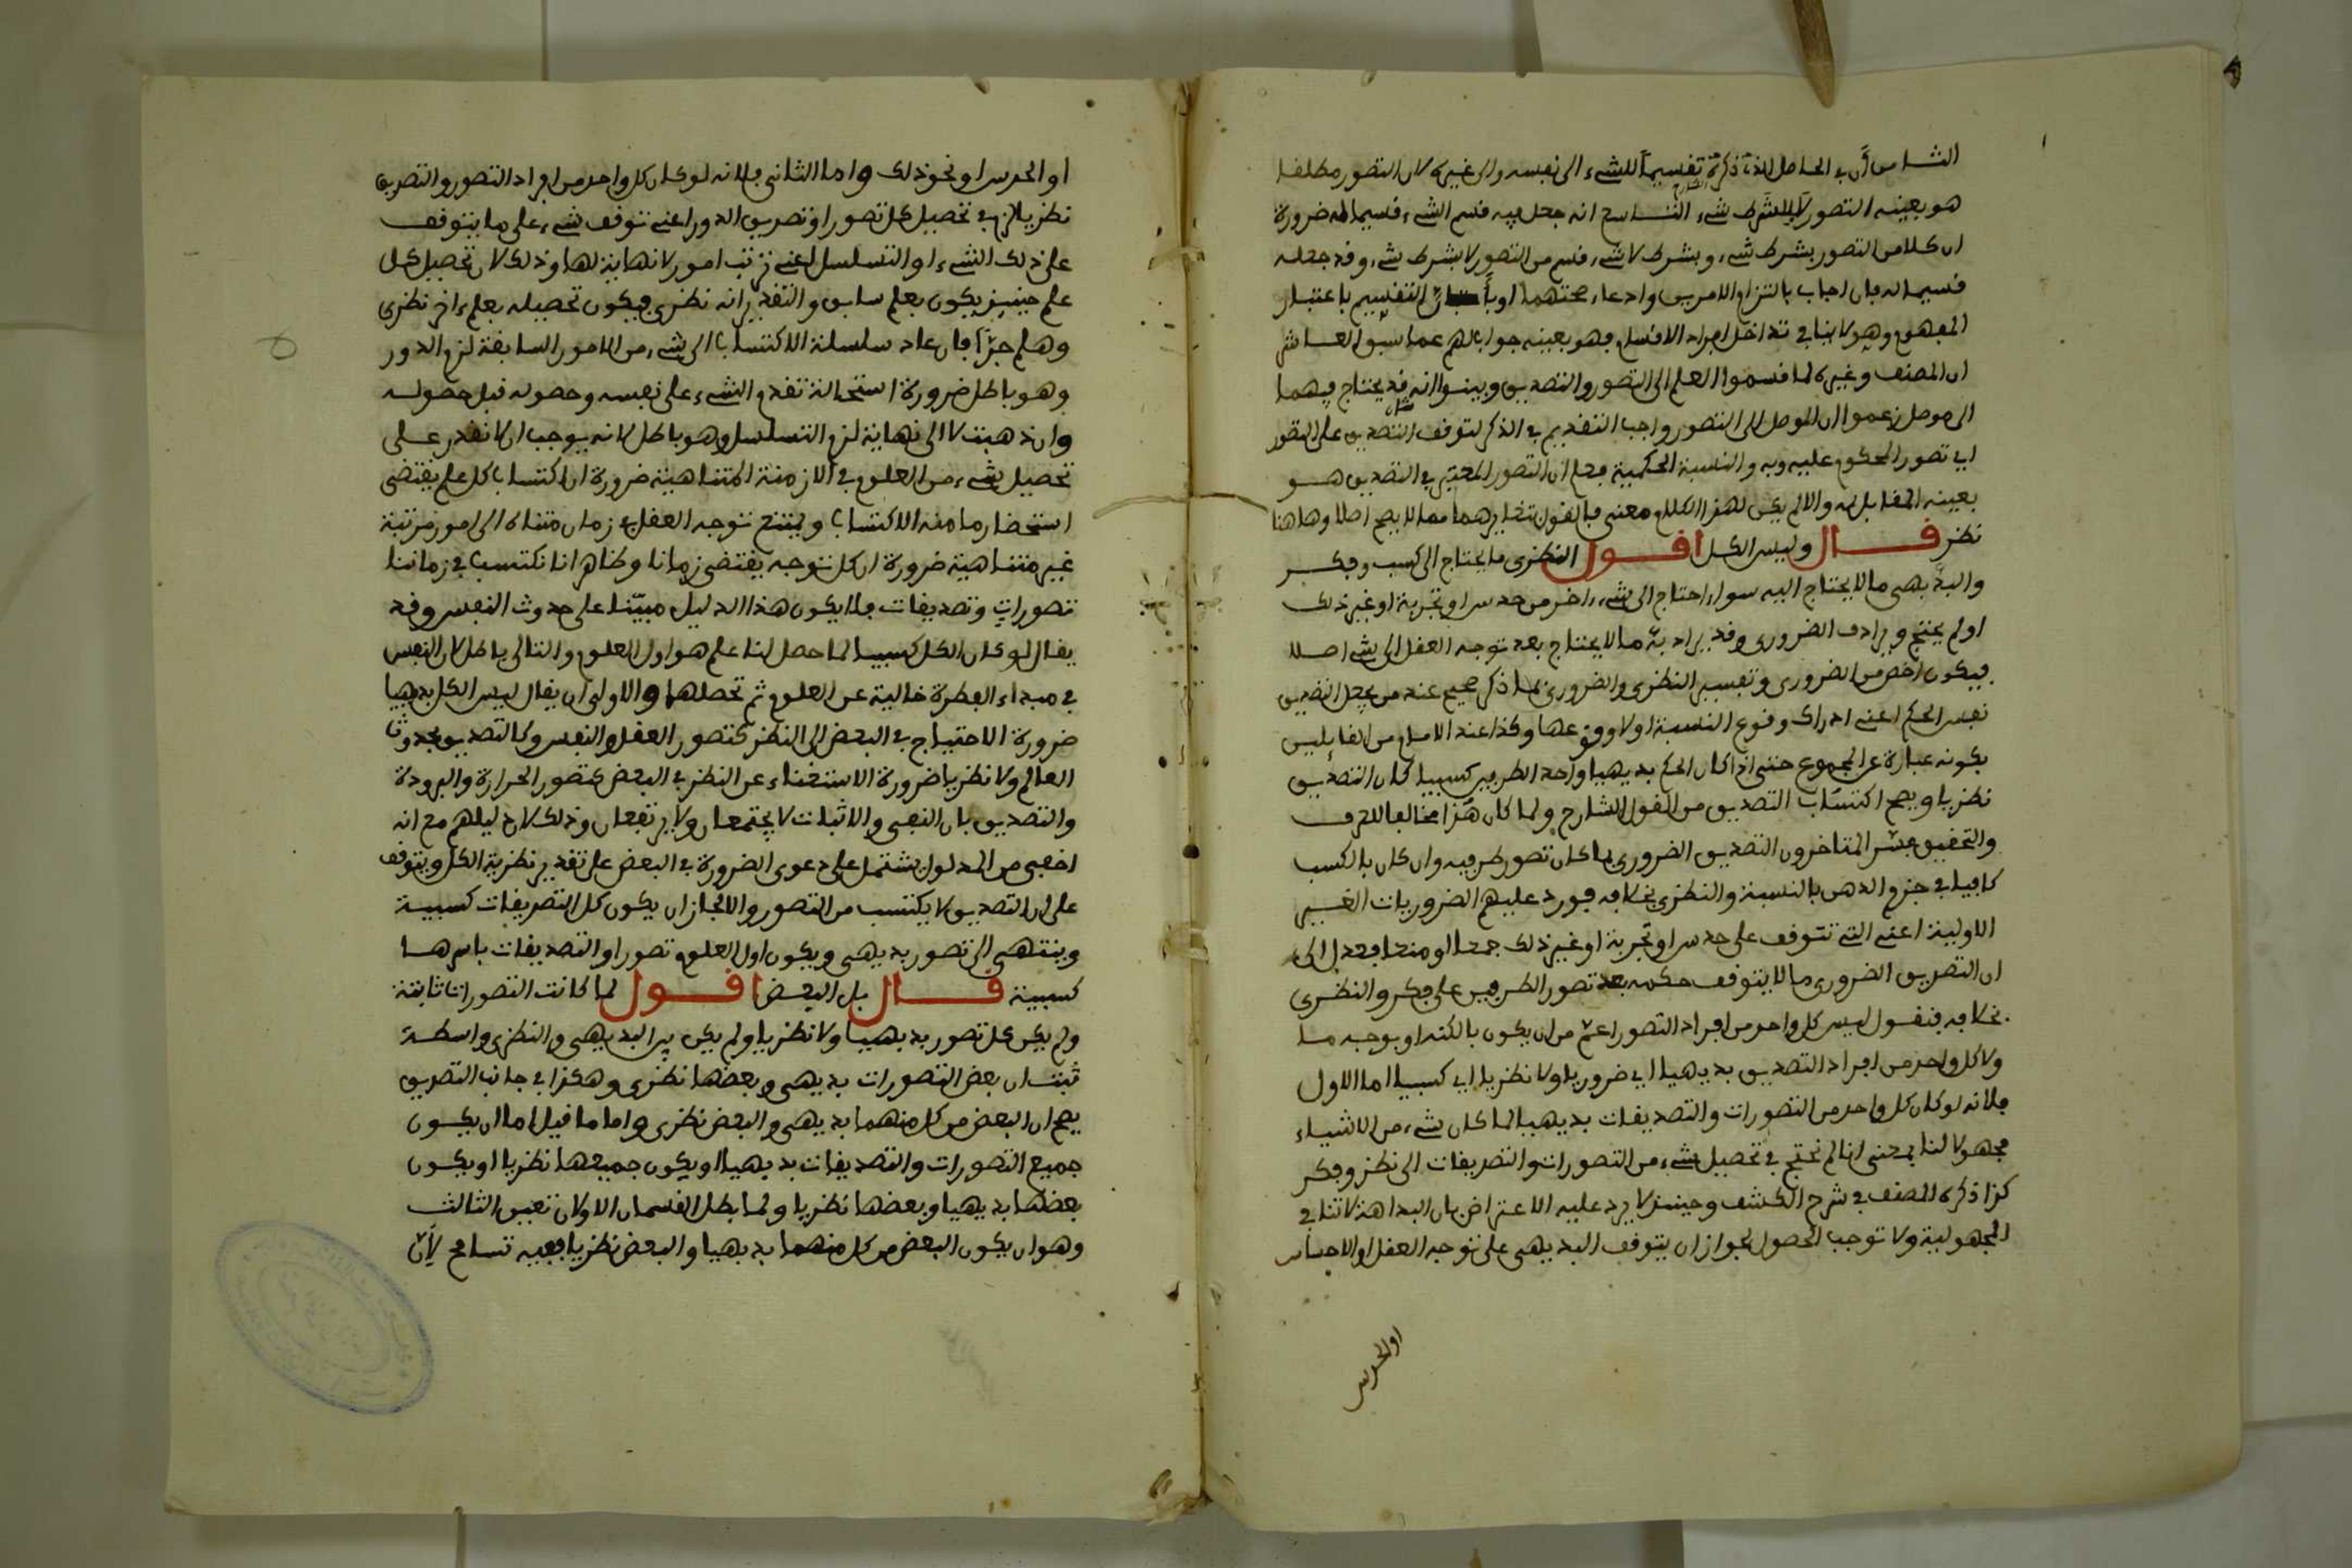 الثامن ان في الحاصل الذي ذكره تقسيما للشيء الى نفسه والى غيره لان التصور مطلقا
هو بعينه التصور لا بشرط شيء التاسع انه جعل فيه قسم الشيء قسيما له ضرورة
ان كلا من التصور بشرط شيء وبشرط لا شيء قسم من التصور لا بشرط شيء وقد جعله
قسيما له فان اجاب بالتزام الامرين وادعاء صحتهما او بان التقسيم باعتبار
المفهوم وهو لا ينافي تداخل افراد الاقسام فهو بعينه جوابا لهم عما سبق العاشر
ان المصنف وغيره لما قسموا العلم الى التصور والتصديق وبينوا انه قد يحتاج فيهما
الى موصل زعموا ان الموصل الى التصور واجب التقديم في الذكر لتوقف التصديق على التصور
اي تصور المحكوم عليه وبه والنسبة الحكمية فعلم ان التصور المعتبر في التصديق هو
بعينه المقابل له والا لم يكن لهذا الكلام معنى فالقول بتغايرهما مما لا يصح اصلا وهاهنا
نظر قال وليس الكل اقول النظري ما يحتاج الى كسب وفكر
والبديهي ما لا يحتاج اليه سواء احتاج الى شيء اخر من حدس او تجربة او غير ذلك
او لم يحتج ويرادف الضروري وقد يراد به ما لا يحتاج بعد توجه العقل الى شيء اصلا
فيكون اخص من الضروري وتفسير النظري والضروري بما ذكر صحيح عند من يجعل التصديق
نفس الحكم اعني ادراك وقوع النسبة او لا وقوعها وكذا عند الامام من القائلين
بكونه عبارة عن المجموع حتى اذا كان الحكم بديهيا واحد الطرفين كسبيا كان التصديق
نظريا ويصح اكتساب التصديق من القول الشارح ولما كان هذا مخالفا للعرف
والتحقيق فسر المتاخرون التصديق الضروري بما كان تصور طرفيه وان كان بالكسب
كافيا في جزم الذهن بالنسبة والنظري بخلافه فورد عليهم الضروريات الغير
الاولية اعني التي تتوقف على حدس او تجربة او غير ذلك جمعا او منعا فعدل الى
ان التصديق الضروري ما لا يتوقف حكمه بعد تصور الطرفين على فكر والنظري
بخلافه فنقول ليس كل واحد من افراد التصور اعم من ان يكون بالكنه او بوجه ما
ولا كل واحد من افراد التصديق بديهيا اي ضروريا ولا نظريا اي كسبيا اما الاول
فلانه لو كان كل واحد من التصورات والتصديقات بديهيا لما كان شيء من الاشياء
مجهولا لنا بمعنى انا لم نحتج في تحصيل شيء من التصورات والتصديقات الى نظر وفكر
كذا ذكره المصنف في شرح الكشف وحينئذ لا يرد عليه الاعتراض بان البداهة لا تنافي
المجهولية ولا توجب الحصول لجواز ان يتوقف البديهي على توجه العقل او الاحساس
او الحدس
او الحدس او نحو ذلك واما الثاني فلانه لو كان كل واحد من افراد التصور والتصديق
نظريا لزم في تحصيل كل تصور او تصديق الدور اعني توقف شيء على ما يتوقف
على ذلك الشيء او التسلسل اعني ترتب امور لا نهاية لها وذلك لان تحصيل كل
علم حينئذ يكون بعلم سابق والتقدير انه نظري فيكون تحصيله بعلم اخر نظري
وهلم جرا فان عاد سلسلة الاكتساب الى شيء من الامور السابقة لزم الدور
وهو باطل ضرورة استحالة تقدم الشيء على نفسه وحصوله قبل حصوله
وان ذهبت لا الى نهاية لزم التسلسل وهو باطل لانه يوجب ان لا نقدر على
تحصيل شيء من العلوم في الازمنة المتناهية ضرورة ان اكتساب كل علم يقتضي
استحضار ما منه الاكتساب ويمتنع توجه العقل في زمان متناه الى امور مرتبة
غير متناهية ضرورة ان كل توجه يقتضي زمانا وظاهر انا نكتسب في زماننا
تصورات وتصديقات فلا يكون هذا الدليل مبينا على حدوث النفس وقد
يقال لو كان الكل كسبيا لما حصل لنا علم هو اول العلوم والتالي باطل لان النفس
في مبداء الفطرة خالية عن العلوم ثم تحصلها والاولى ان يقال ليس الكل بديهيا
ضرورة الاحتياج في البعض الى النظر كتصور العقل والنفس وكالتصديق بحدوث
العالم ولا نظريا ضرورة الاستغناء عن النظر في البعض كتصور الحرارة والبرودة
والتصديق بان النفي والاثبات لا يجتمعان ولا يرتفعان وذلك لان دليلهم مع انه
اخفى من المدلول يشتمل على دعوى الضرورة في البعض على تقدير نظرية الكل ويتوقف
على ان التصديق لا يكتسب من التصور والا لجاز ان يكون كل التصديقات كسبية
وينتهي الى تصور بديهي ويكون اول العلوم تصورا والتصديقات باسرها
كسبية قال بل البعض اقول لما كانت التصورات ثابتة
ولم يكن كل تصور بديهيا ولا نظريا ولم يكن بين البديهي والنظري واسطة
ثبت ان بعض التصورات بديهي وبعضها نظري وهكذا في جانب التصديق
يصح ان البعض من كل منهما بديهي والبعض نظري واما ما قيل اما ان يكون
جميع التصورات والتصديقات بديهيا او يكون جميعها نظريا او يكون
بعضها بديهيا وبعضها نظريا ولما بطل القسمان الاولان تعين الثالث
وهو ان يكون البعض من كل منهما بديهيا والبعض نظريا ففيه تسامح لان